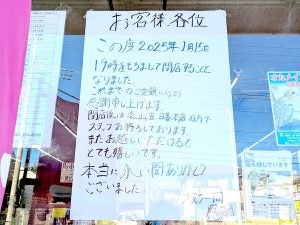 お客様各位
この度2025年1月15日
19時をもちまして閉店することと
なりました。
これまでのご愛顧心より
感謝申し上げます。
閉店後は 店 の方で
スタッフお待ちしております
またお越しいただけると
とても嬉しいです。
本当に永い間ありがとう
ございました。